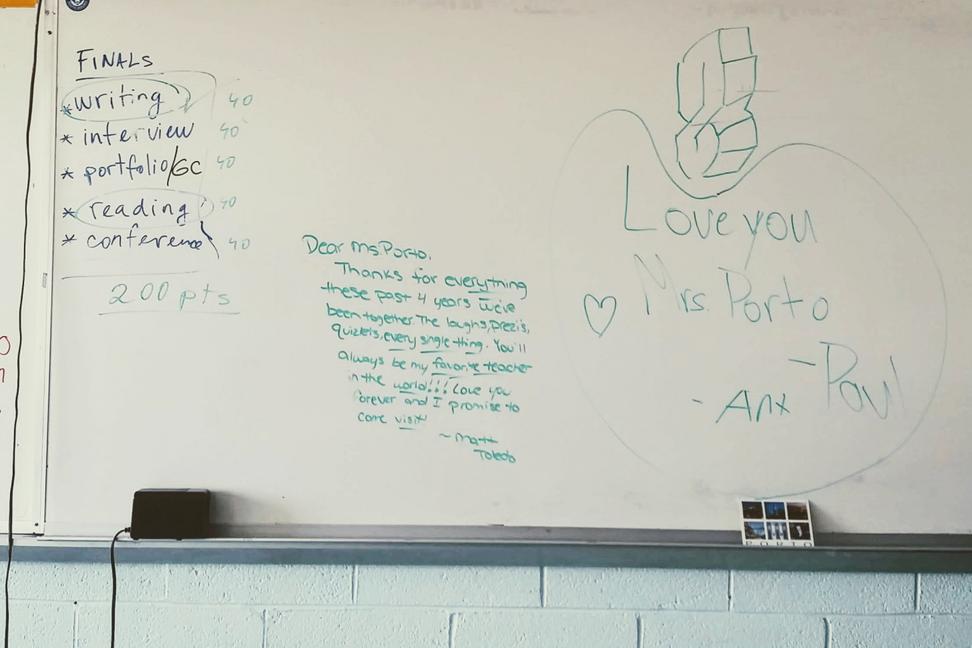 FINALS
* writing 40
* interview 40
* portfolio/GC 40
* reading 40
* conference 40
200 pts
Dear Ms.Porto,
Thanks for everything
these past 4 years we've
been together. The laughs, prezis,
quizlets, every single thing. You'll
always be my favorite teacher
in the world!!! Love you
forever and I promise to
come visit
~Matt
Toledo
Love you
Mrs. Porto
-Paul
- Anx
PORTO